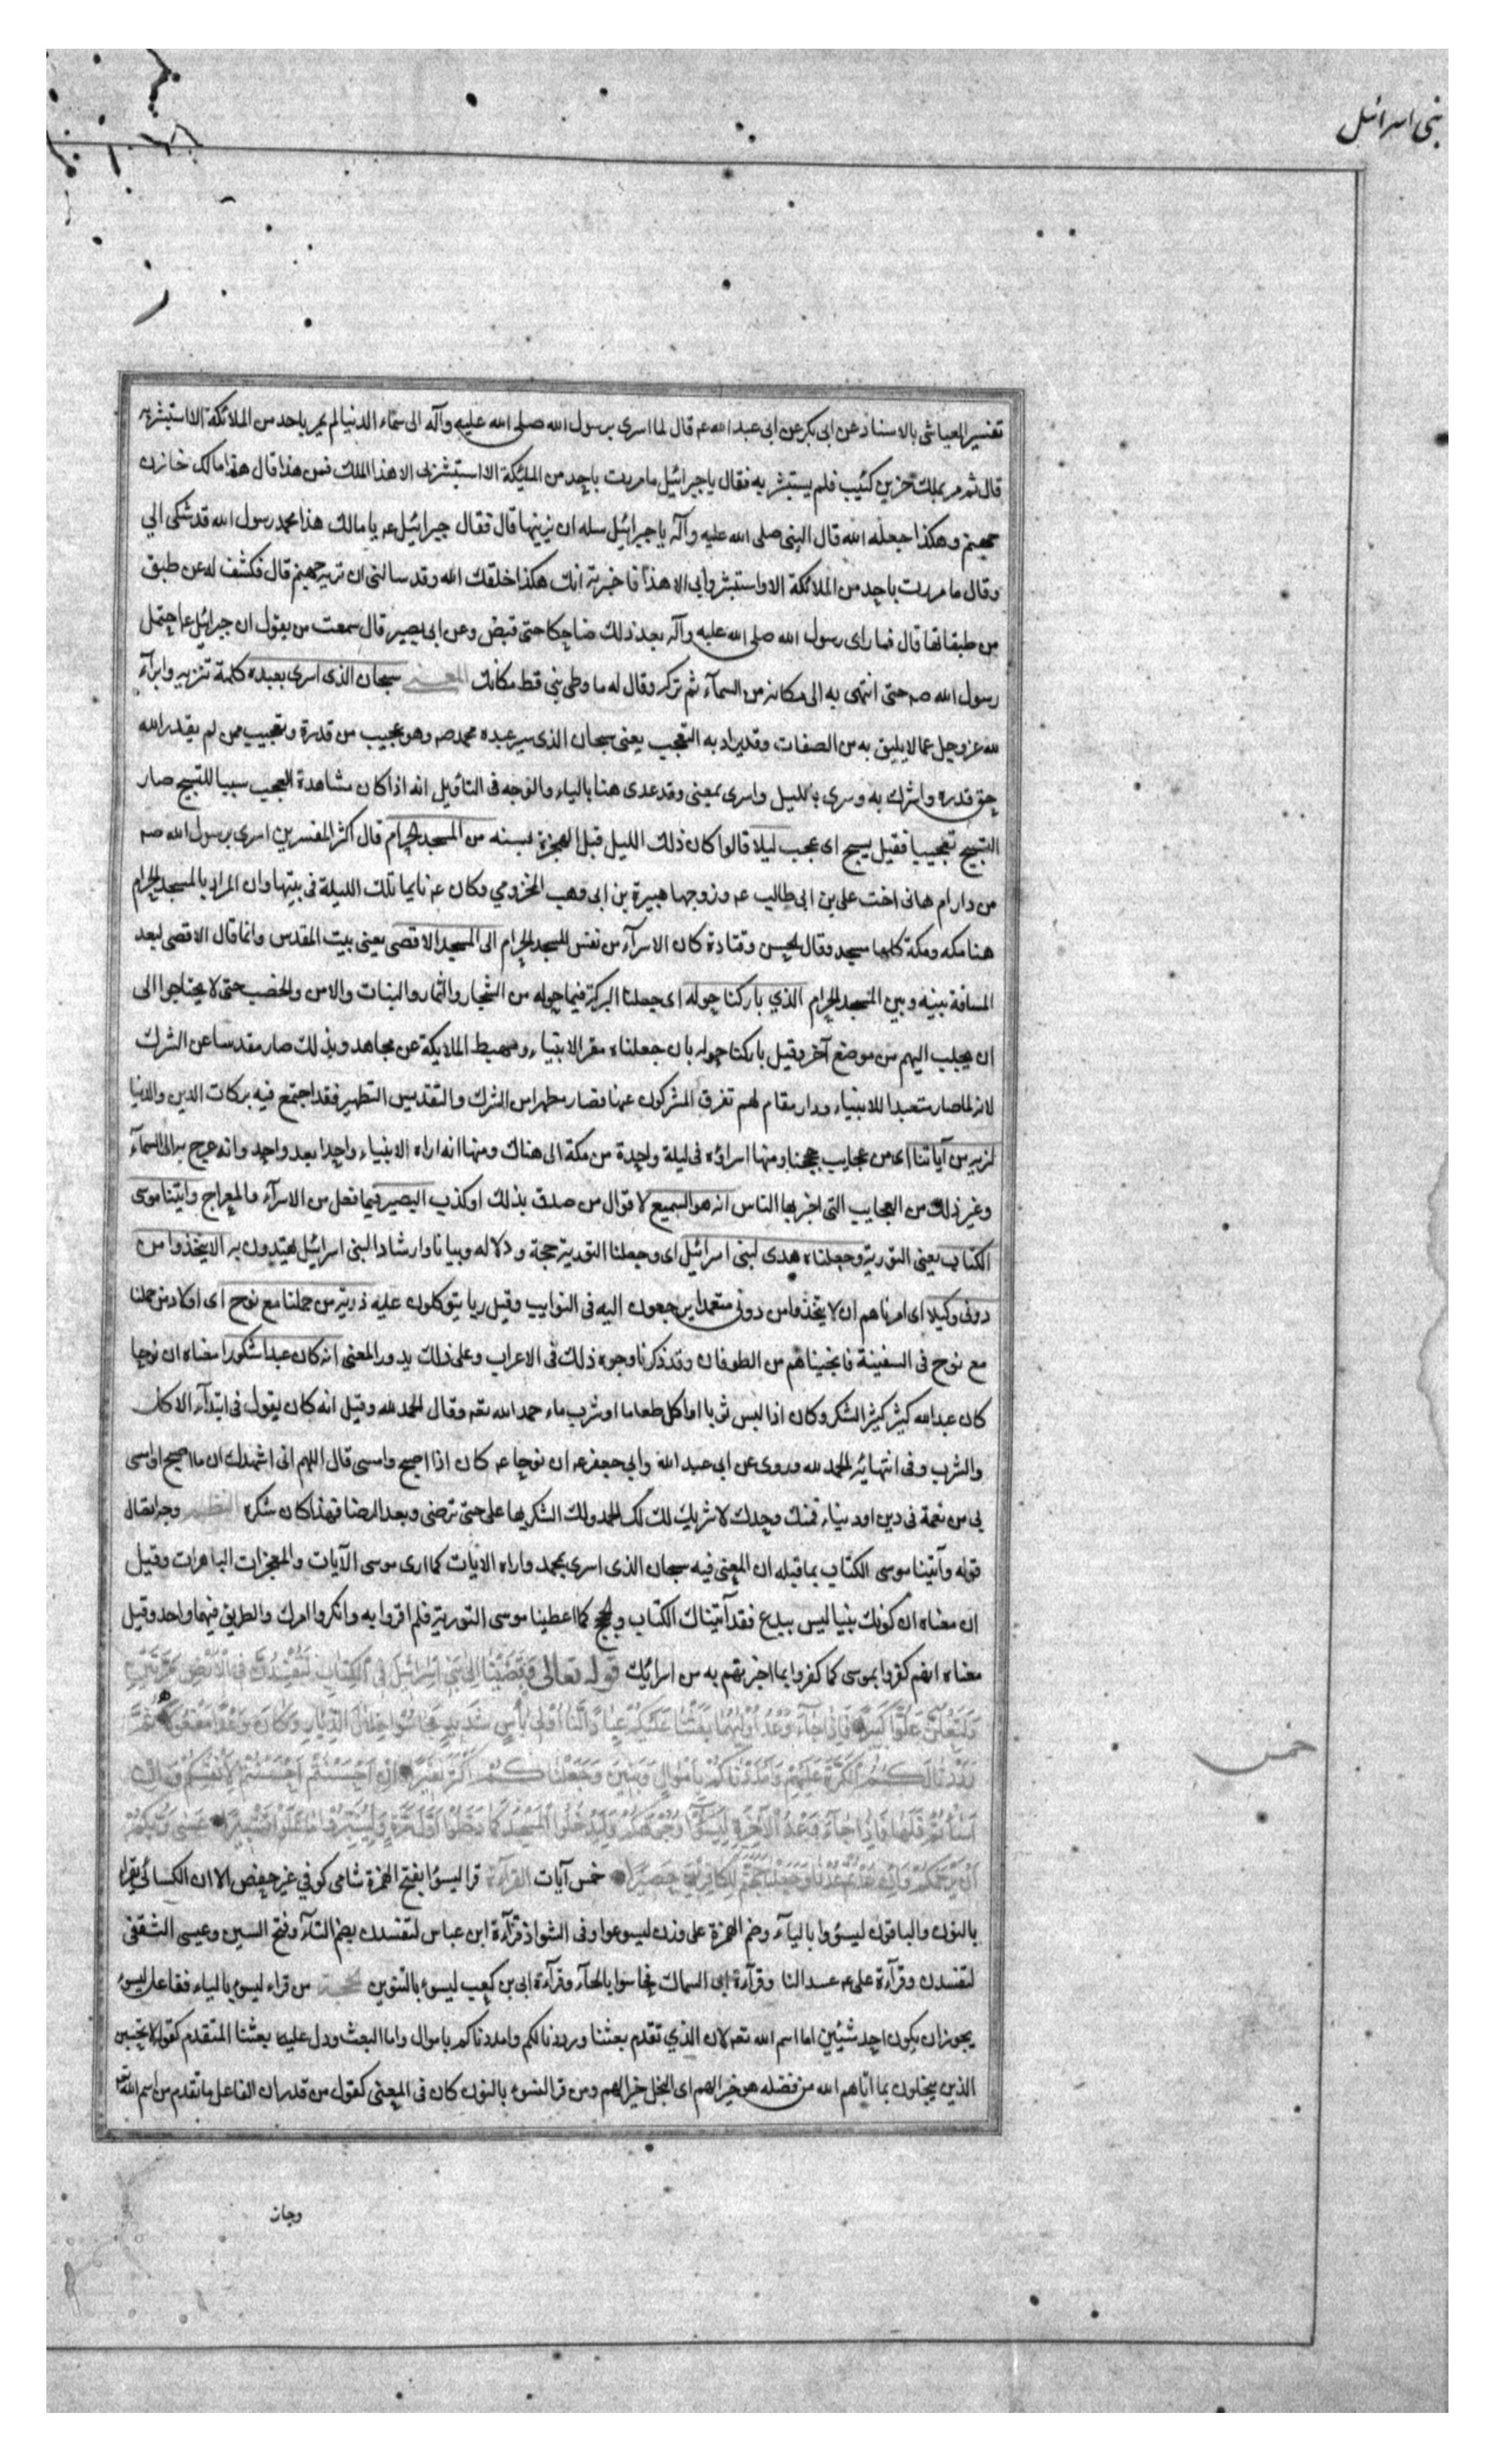 بنى اسرائيل
تفسير العياشى بالاسناد عن ابى بكر عن ابى عبد الله عم قال لما اسرى برسول الله صلى الله عليه وآله الى سمآء الدنيا لم يمر باحد من الملائكة الا استبشر به
قال ثم مر بملك حزين كئيب فلم يستبشر به فقال يا جبرائيل ما مررت باحد من الملئكة الا استبشر بى الا هذا الملك فمن هذا قال هذا مالك خازن
جهنم وهكذا جعله الله قال النبى صلى الله عليه وآله يا جبرائيل سله ان يرينيها قال فقال جبرائيل عم يا مالك هذا محمد رسول الله قد شكى الي
وقال ما مررت باحد من الملائكة الا واستبشر بى الا هذا فاخبرته انك هكذا خلقك الله وقد سالنى ان تريه جهنم قال فكشف له عن طبق
من طبقاتها قال فما راى رسول الله صلى الله عليه وآله بعد ذلك ضاحكا حتى قبض وعن ابى بصير قال سمعت من يقول ان جبرائيل عم احتمل
رسول الله صم حتى انتهى به الى مكان من السمآء ثم تركه وقال له ما وطى نبي قط مكانك المعنى سبحان الذى اسرى بعبده كلمة تنزيه وابرآء
لله عز وجل عما لا يليق به من الصفات وقد يراد به التعجب يعنى سبحان الذى سير عبده محمد صم وهو عجيب من قدرة وتعجيب ممن لم يقدر الله
حق قدره واشرك به وسرى بالليل واسرى بمعنى وقد عدى هنا بالياء والوجه فى التأويل انه اذا كان مشاهدة العجب سببا للتسبيح صار
التسبيح تعجيبا فقيل يسبح اى عجب ليلا قالوا كان ذلك الليل قبل الهجرة بسنه من المسجد الحرام قال اكثر المفسرين اسرى برسول الله صم
من دار ام هانى اخت على بن ابى طالب عم وزوجها هبيرة بن ابى وهب المخزومي وكان عم نايما تلك الليلة فى بيتها وان المراد بالمسجد الحرام
هنا مكه ومكة كلها مسجد وقال الحسن وقتادة كان الاسرآء من نفس المسجد الحرام الى المسجد الاقصى يعنى بيت المقدس وانما قال الاقصى لبعد
المسافة بينه وبين المسجد الحرام الذي باركنا حوله اى جعلنا البركة فيما حوله من الشجار والثمار والنبات والامن والخصب حتى لا يحتاجوا الى
ان يجلب اليهم من موضع آخر وقيل باركنا حوله بان جعلناه مقر الانبياء ومهبط الملايكة عن مجاهد وبذلك صار مقدسا عن الشرك
لانه لما صار متعبدا للانبياء ودار مقام لهم تفرق المشركون عنها فصار مطهرا من الشرك والتقديس التطهير فقد اجتمع فيه بركات الدين والدنيا
لنريه من آياتنا اى من عجايب حججنا ومنها اسراؤه فى ليلة واحدة من مكة الى هناك ومنها انه اراه الانبياء واحدا بعد واحد وانه عرج به الى السمآء
وغير ذلك من العجايب التى اخبر بها الناس انه هو السميع لاقوال من صدق بذلك او كذب البصير فيما فعل من الاسرآء والمعراج وآتينا موسى
الكتاب يعنى التورية وجعلناه هدى لبنى اسرائيل اى وجعلنا التورية حجة ودلاله وبيانا وارشادا لبنى اسرائيل يهتدون به الا يتخذوا من
دونى وكيلا اى امرناهم ان لا يتخذوا من دونى معتمدا يرجعون اليه فى النوايب وقيل ربا يتوكلون عليه ذرية من حملنا مع نوح اى اولاد من حملنا
مع نوح فى السفينة فانجيناهم من الطوفان وقد ذكرنا وجوه ذلك فى الاعراب وعلى ذلك يدور المعنى انه كان عبدا شكورا معناه ان نوحا
كان عبد الله كثير الشكر وكان اذا لبس ثوبا او اكل طعاما او شرب ماء حمد الله تعم وقال الحمد لله وقيل انه كان يقول فى ابتدآء الاكل
والشرب وفى انتهائه الحمد لله وروى عن ابى عبد الله وابي جعفر عم ان نوحا عم كان اذا اصبح وامسى قال اللهم انى اشهدك ان ما اصبح او امسى
بى من نعمة فى دين او دنيا فمنك وحدك لا شريك لك لك الحمد ولك الشكر بها على حتى ترضى وبعد الرضا فهذا كان شكره النظم وجه اتصال
قوله وآتينا موسى الكتاب بما قبله ان المعنى فيه سبحان الذى اسرى بمحمد واراه الايات كما ارى موسى الآيات والمعجزات الباهرات وقيل
ان معناه ان كونك نبيا ليس ببدع فقد آتيناك الكتاب والحجج كما اعطينا موسى التورية فلم اقروا به وانكروا امرك والطريق فيهما واحد وقيل
معناه انهم كفروا بموسى كما كفروا بما اخبرتهم به من اسرائك قوله تعالى وَقَضَيْنَا اِلٰى بَنِي اِسْرَائِيلَ فِي الْكِتَابِ لَتُفْسِدُنَّ فِي الْاَرْضِ مَرَّتَيْنِ
وَلَتَعْلُنَّ عُلُوًّا كَبِيرًا فَاِذَا جَآءَ وَعْدُ اُولٰيهُمَا بَعَثْنَا عَلَيْكُمْ عِبَادًا لَنَا اُولِي بَأْسٍ شَدِيدٍ فَجَاسُوا خِلَالَ الدِّيَارِ وَكَانَ وَعْدًا مَفْعُولًا ثُمَّ
رَدَدْنَا لَكُمُ الْكَرَّةَ عَلَيْهِمْ وَاَمْدَدْنَاكُمْ بِاَمْوَالٍ وَبَنِينَ وَجَعَلْنَاكُمْ اَكْثَرَ نَفِيرًا اِنْ اَحْسَنْتُمْ اَحْسَنْتُمْ لِاَنْفُسِكُمْ وَاِنْ
اَسَأْتُمْ فَلَهَا فَاِذَا جَآءَ وَعْدُ الْآخِرَةِ لِيَسُوؤُا وُجُوهَكُمْ وَلِيَدْخُلُوا الْمَسْجِدَ كَمَا دَخَلُوهُ اَوَّلَ مَرَّةٍ وَلِيُتَبِّرُوا مَا عَلَوْا تَتْبِيرًا عَسٰى رَبُّكُمْ
اَنْ يَرْحَمَكُمْ وَاِنْ عُدْتُمْ عُدْنَا وَجَعَلْنَا جَهَنَّمَ لِلْكَافِرِينَ حَصِيرًا خمس آيات القرآءة قرا ليسوٓا بفتح الهمزة شامى كوفي غير حفص الا ان الكسائى يقراه
خمس
بالنون والباقون ليسؤوا باليآء وضم الهمزة على وزن ليسوعوا وفى الشواذ قرآءة ابن عباس لتفسدن بضم التآء وفتح السين وعيسى الثقفى
لتفسدن وقرآءة على عم عبيدا لنا وقرآءة ابى السمال فحاسوا بالحآء وقرآءة ابى بن كعب ليسوءً بالتنوين الحجة من قراء ليسوء بالياء ففاعل ليسوء
يجوز ان يكون احد شيئين اما اسم الله تعم لان الذي تقدم بعثنا ورددنا لكم وامددناكم باموال واما البعث ودل عليه بعثنا المتقدم كقوله لا يحسبن
الذين يبخلون بما اتاهم الله من فضله هو خيرا لهم اى البخل خيرا لهم ومن قرا لنسوء بالنون كان فى المعنى كقول من قدر ان الفاعل ما تقدم من اسم الله تعم
وجاز